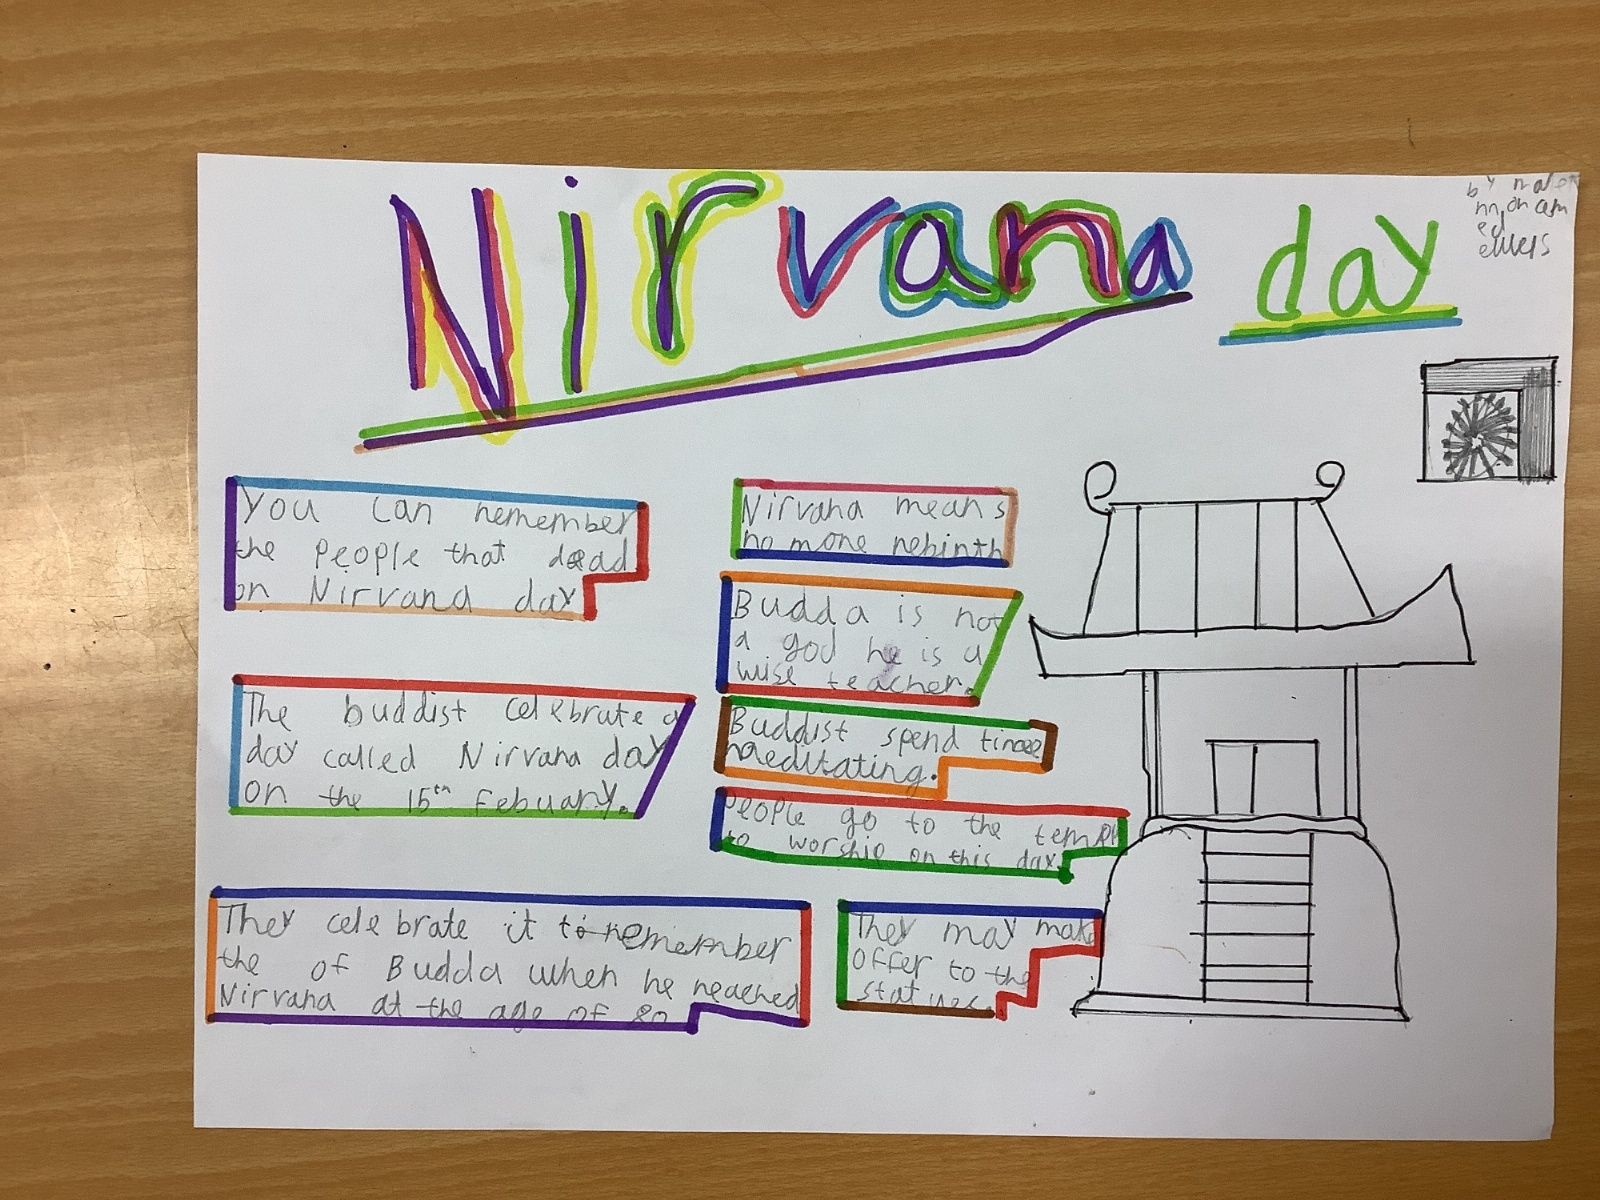 Nirvana day
by
You can remember
the people that dead
on Nirvana day
The buddist celebrate a
day called Nirvana day
on the 15th Febuary.
They celebrate it to remember
the of Budda when he reached
Nirvana at the age of 80
Nirvana means
no more rebirth
Budda is not
a god he is a
wise teacher.
Buddist spend time
meditating.
People go to the temple
to worship on this day.
They may make
offer to the
statues.